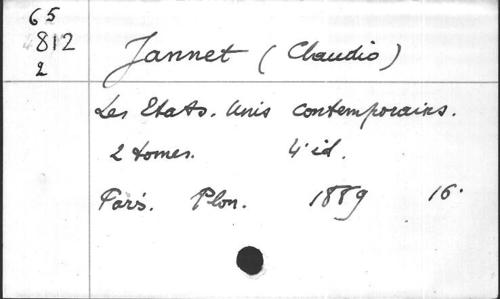 65
812
2
Jannet (Claudio)
Les Etats. Unis contemporains.
2 tomes. 4' éd.
Paris. Plon. 1889 16°